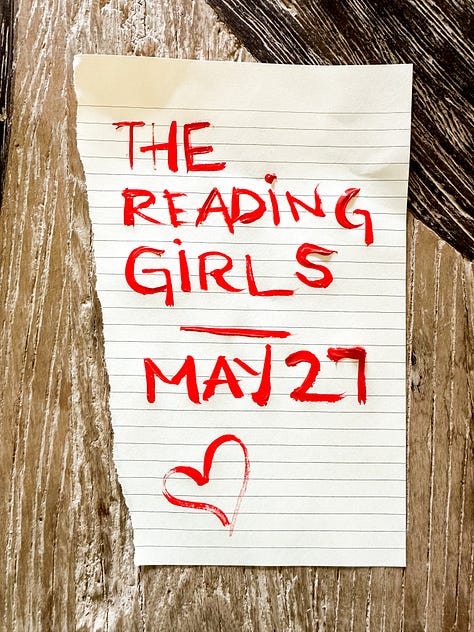 THE
READiNG
GiRLS
MAY 27